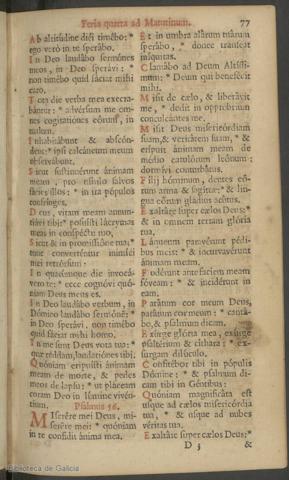 Feria quinta ad Matutinum. 77
Ab altitudine diéi timébo: *
ego verò in te sperábo.
In Deo laudábo sermónes
meos, in Deo sperávi: *
non timébo quid fáciat mihi
caro.
Tota die verba mea execra-
bántur: * advérsum me om-
nes cogitatiónes eórum, in
malum.
Inhabitábunt & abscón-
dent: * ipsi calcáneum meum
observábunt.
Sicut sustinuérunt ánimam
meam, pro níhilo salvos
fácies illos: * in ira pópulos
confrínges.
Deus, vitam meam annun-
tiávi tibi: * posuísti lácrymas
meas in conspéctu tuo,
Sicut & in promissióne tua: *
tunc converténtur inimíci
mei retrórsùm:
In quacúmque die invocá-
vero te: * ecce cognóvi quó-
niam Deus meus es.
In Deo laudábo verbum, in
Dómino laudábo sermónē: *
in Deo sperávi, non timébo
quid fáciat mihi homo.
In me sunt Deus vota tua: *
quæ réddam, laudatiónes tibi.
Quóniam eripuísti ánimam
meam de morte, & pedes
meos de lapsu: * ut pláceam
coram Deo in lúmine vivén-
tium.
Psalmus 56.
Miserére mei Deus, mi-
serére mei: * quóniam
in te confídit ánima mea.
Et in umbra alárum tuárum
sperábo, * donec tránseat
iníquitas.
Clamábo ad Deum Altíssi-
mum: * Deum qui benefécit
mihi.
Misit de cælo, & liberávit
me, * dedit in oppróbrium
conculcántes me.
Misit Deus misericórdiam
suam, & veritátem suam, * &
erípuit ánimam meam de
médio catulórum leónum:
dormívi conturbátus.
Fílij hóminum, dentes eó-
rum arma & sagíttæ: * & lin-
gua eórum gládius acútus.
Exaltáre super cælos Deus: *
& in omnem terram glória
tua.
Láqueum paravérunt pédi-
bus meis: * & incurvavérunt
ánimam meam.
Fodérunt ante fáciem meam
fóveam: * & incidérunt in
eam.
Parátum cor meum Deus,
parátum cor meum: * cantá-
bo, & psalmum dicam.
Exúrge glória mea, exúrge
psaltérium & cíthara: * ex-
súrgam dilúculo.
Confitébor tibi in pópulis
Dómine: * & psalmum di-
cam tibi in Géntibus:
Quóniam magnificáta est
usque ad cælos misericórdia
tua, * & usque ad nubes
véritas tua.
Exaltáre super cælos Deus: *
D 3 &
Biblioteca de Galicia